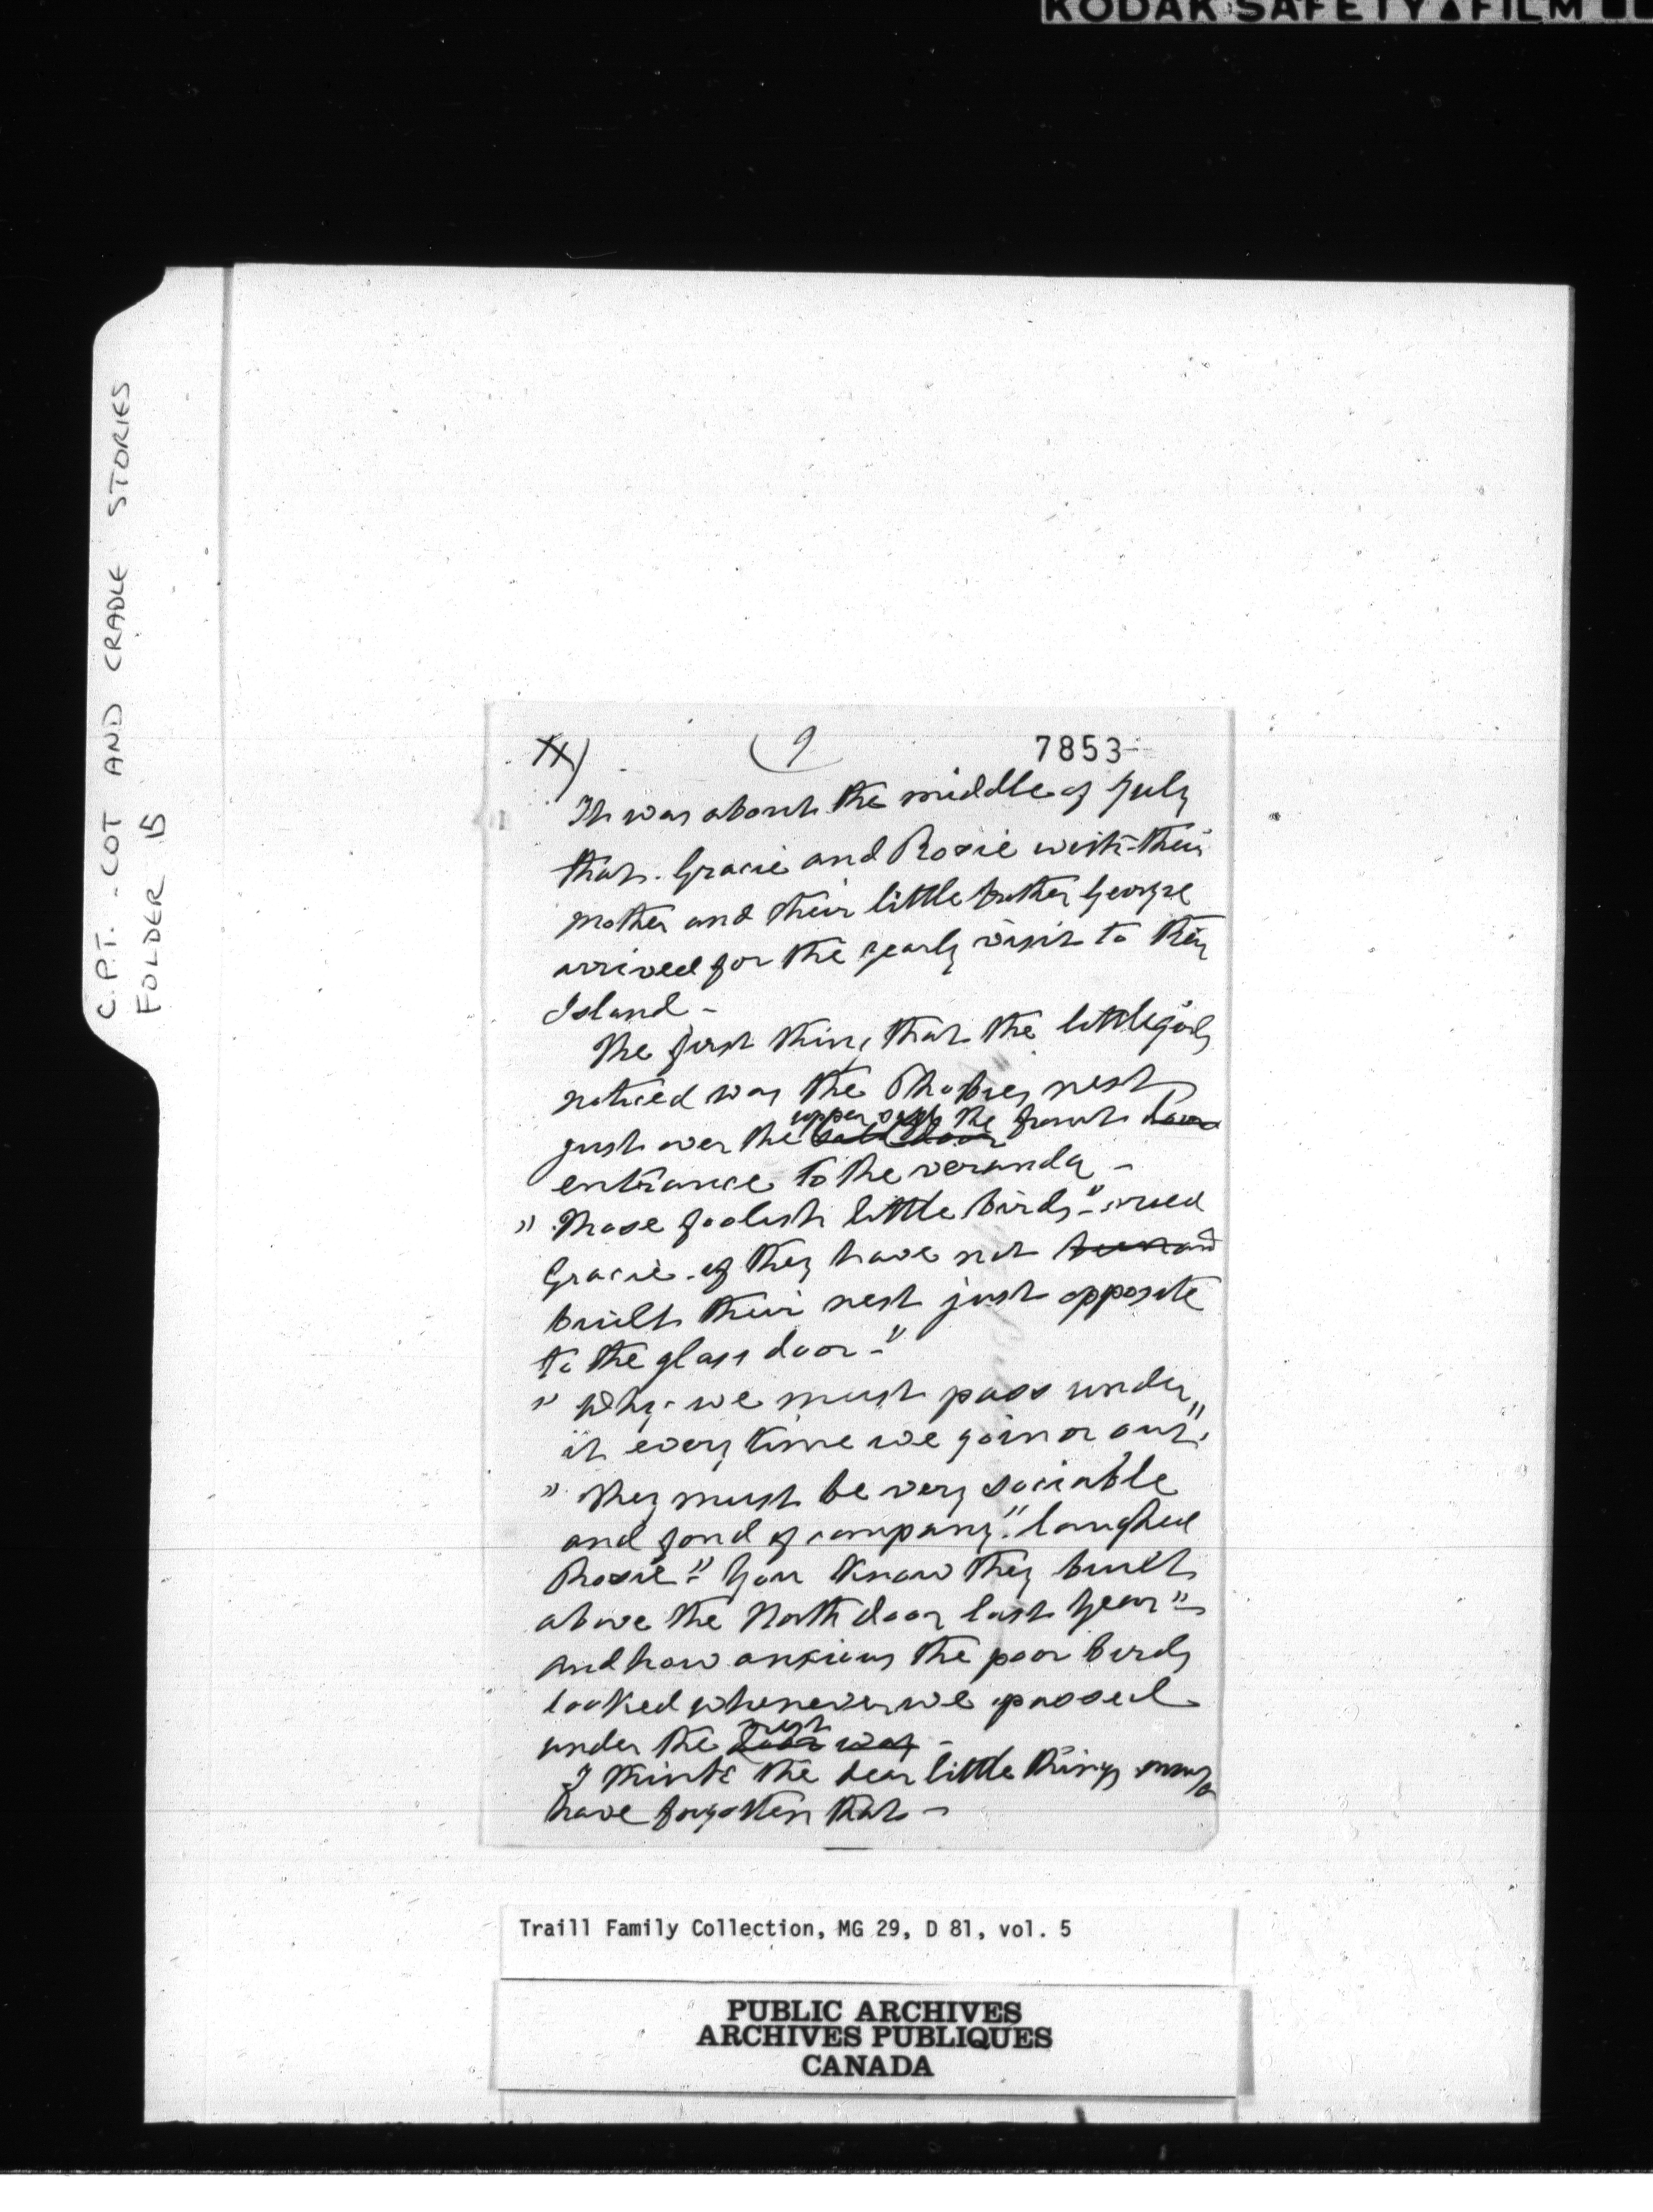 KODAK SAFETY FILM
C.P.T. - COT AND CRADLE STORIES
FOLDER 15
(9
7853
It was about the middle of July
that Gracie and Rosie with their
mother and their little brother George
arrived for the yearly visit to the
Island -
The first thing that the little girls
noticed was the Phoebies nest
upper sash the
just over the front door
entrance to the veranda -
"Those foolish little birds" - cried
Gracie - if they have not
built their nest just opposite
to the glass door -"
"Why - we must pass under
it every time we go in or out".
"They must be very sociable
and fond of company." laughed
Rosie - "You know they built
above the North door last year" -
and how anxious the poor birds
looked whenever we passed
nest
under the door way -
I think the dear little things must
have forgotten that -
Traill Family Collection, MG 29, D 81, vol. 5
PUBLIC ARCHIVES
ARCHIVES PUBLIQUES
CANADA